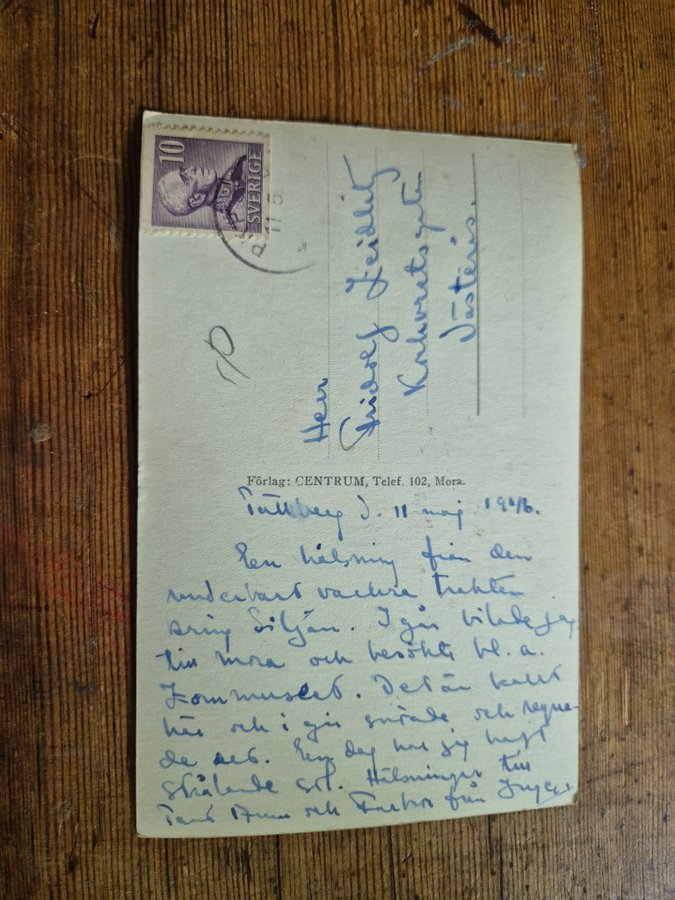 10
SVERIGE
11 5
Herr
Fridolf Zeidlitz
Västerås.
Förlag: CENTRUM, Telef. 102, Mora.
Tällberg d. 11 maj 1946.
En hälsning från den
underbart vackra trakten
kring Siljan. I går bilade jag
till Mora och besökte bl. a.
Zornmuseet. Det är kallt
här och i går snöade och regna-
de det. En dag har jag haft
strålande sol. Hälsningar till
Tant Anna och Farbror från